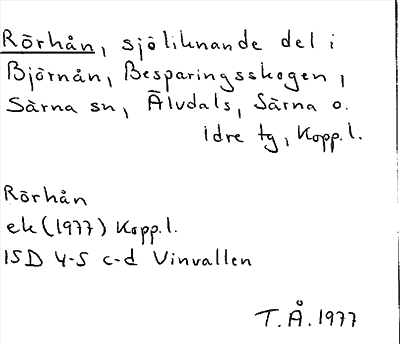 Rörhån, sjöliknande del i
Björnån, Besparingsskogen,
Särna sn, Älvdals, Särna o.
Idre tg, Kopp.l.
Rörhån
ek (1977) Kopp.l.
15D 4-5 c-d Vinvallen
T.Å. 1977